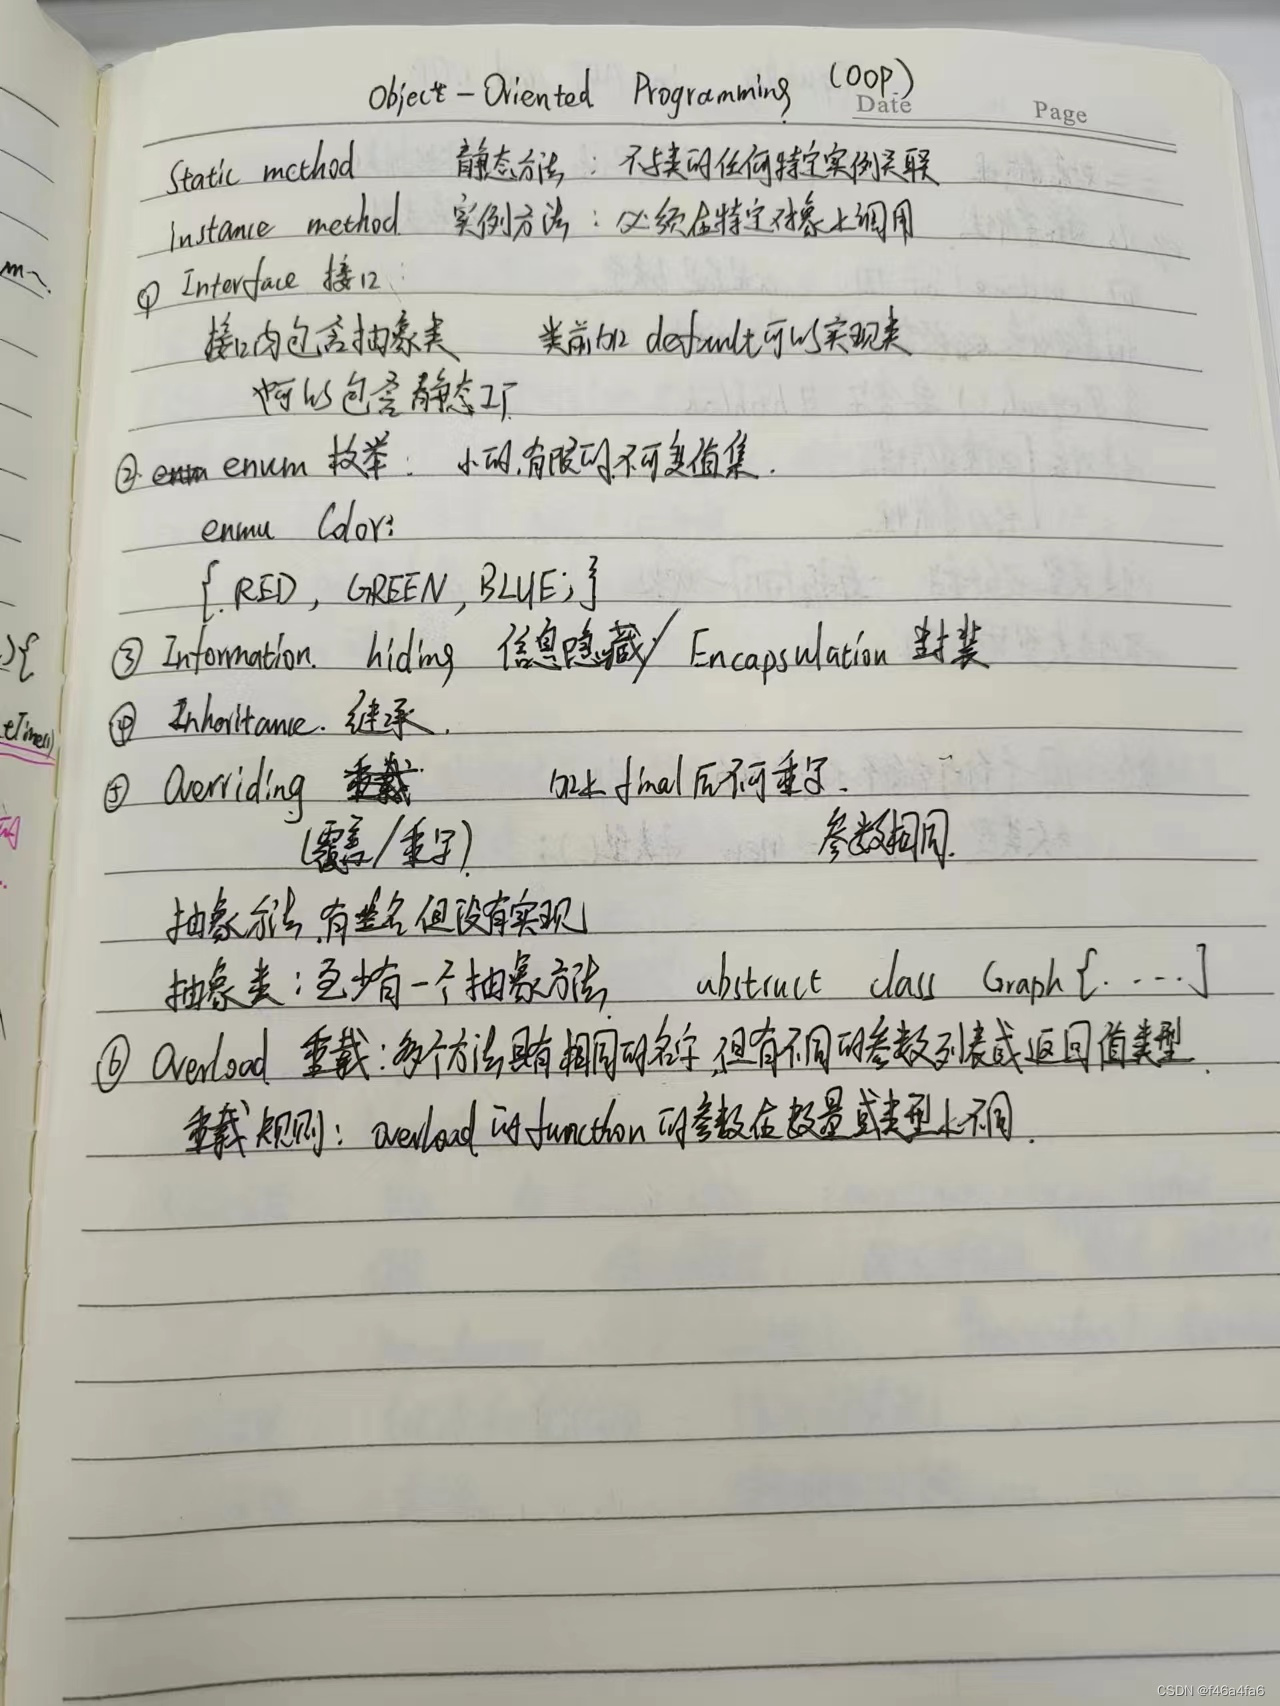 Object-Oriented Programming (OOP.)
Date Page
Static method 静态方法：不与类的任何特定实例关联
instance method 实例方法：必须在特定对象上调用
① Interface 接口：
接口内包含抽象类 类前加 default可以实现类
也可以包含静态工厂
② enum 枚举：小的,有限的,不可变值集.
enmu Color:
{.RED, GREEN, BLUE;}
③ Information. hiding 信息隐藏/ Encapsulation 封装
④ Inheritance. 继承.
⑤ Overriding 重载 加上final后不可重写.
(覆盖/重写) 参数相同.
抽象方法,有签名但没有实现
抽象类：至少有一个抽象方法, abstruct class Graph{.....}
⑥ Overload 重载：多个方法具有相同的名字,但有不同的参数列表或返回值类型.
重载规则：overload 的function的参数在数量或类型上不同.
m~.
){
eTime()
的
CSDN @f46a4fa6